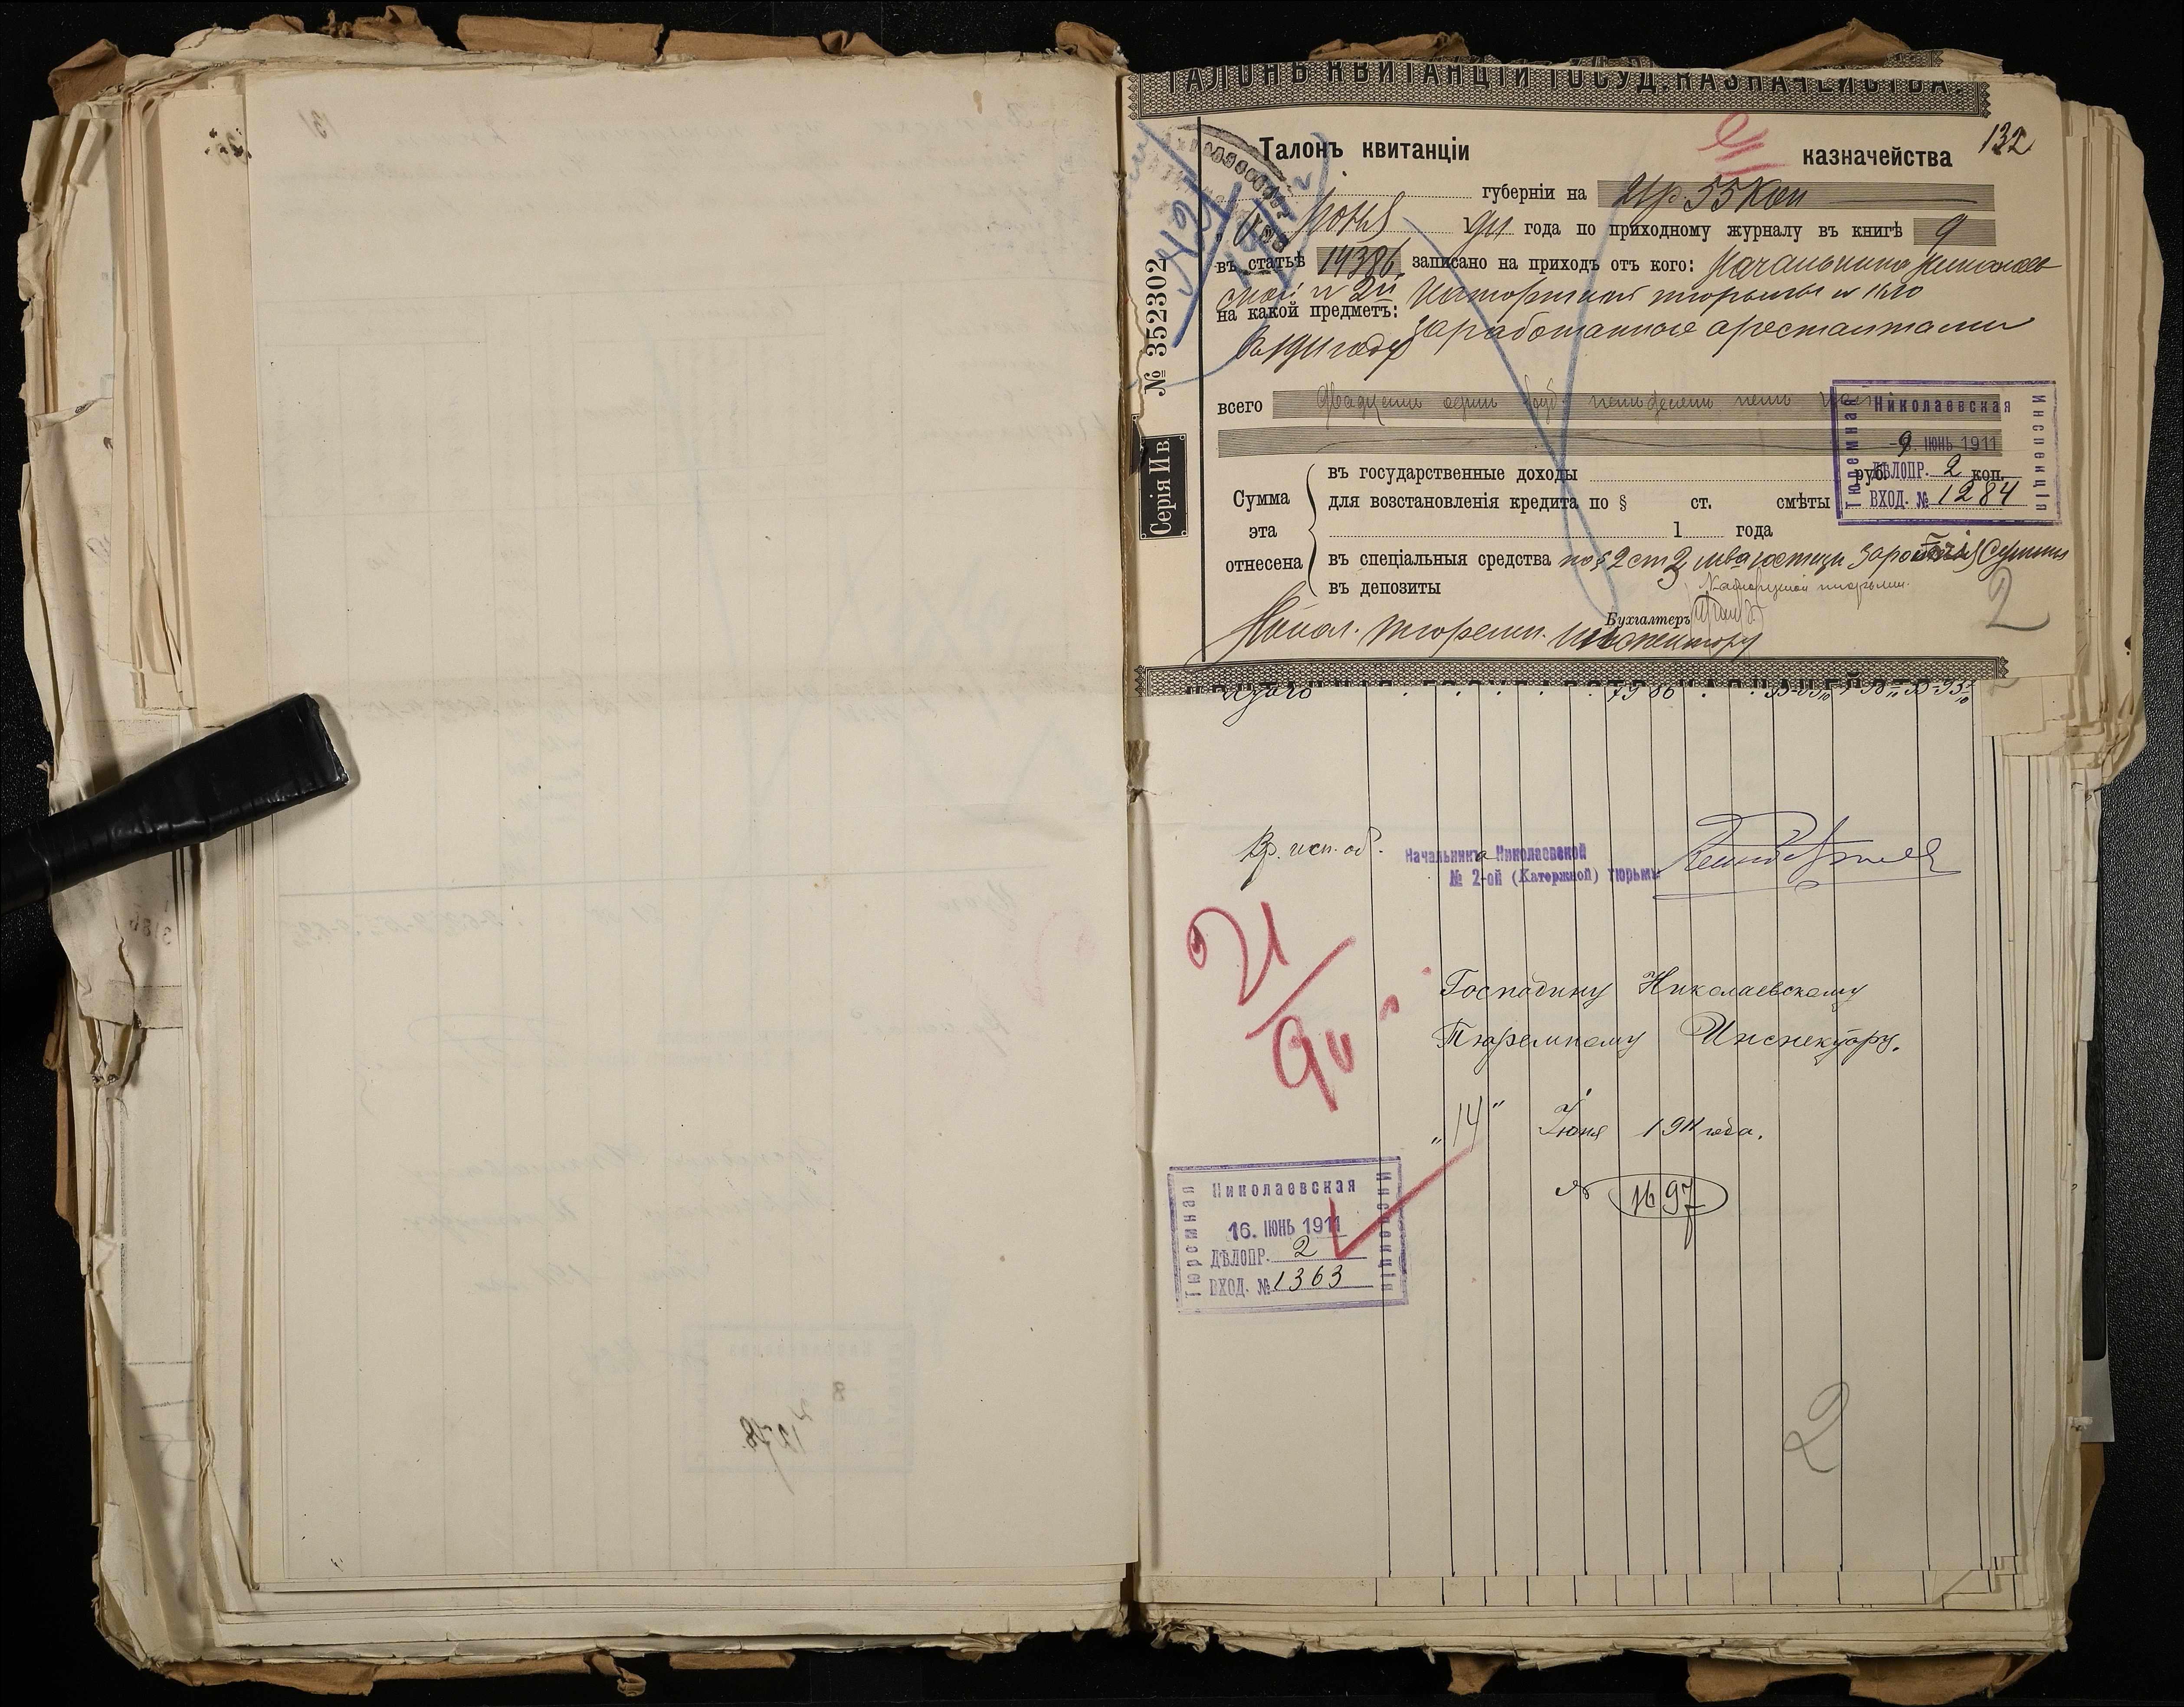 ТАЛОНЪ КВИТАНЦІИ ГОСУД. КАЗНАЧЕЙСТВА.
132
Талонъ квитанціи казначейства
губерніи на 21 р 55 коп
Іюня 1911 года по приходному журналу въ книгѣ 9
въ статьѣ 14386 записано на приходъ отъ кого: Начальника Николаев
ской № 2й Каторжной тюрьмы
на какой предметъ: заработанные арестантами
въ 1911 году
№ 352302
Серія И в.
всего Двадцать одинъ руб. пятьдесятъ пять коп
Николаевская
Тюремная
Инспекція
9 ІЮНЬ 1911
ДѢЛОПР. 2
ВХОД. № 1284
Сумма эта отнесена
въ государственные доходы руб. коп.
для возстановленія кредита по § ст. смѣты
1 года
въ спеціальныя средства по § 2 ст 2 м-ва юстиціи
въ депозиты
Каторжной тюрьмы.
Бухгалтеръ
Никол. Тюремн. Инспектору
2
Итого 79 86
Вр. исп. об. Начальника Николаевской
№ 2-ой (Каторжной) тюрьмы
21/911
Господину Николаевскому
Тюремному Инспектору.
"14" Іюня 1911 года.
№ 1697
Николаевская
Тюремная
Инспекція
16. ІЮНЬ 1911
ДѢЛОПР. 2
ВХОД. № 1363
2